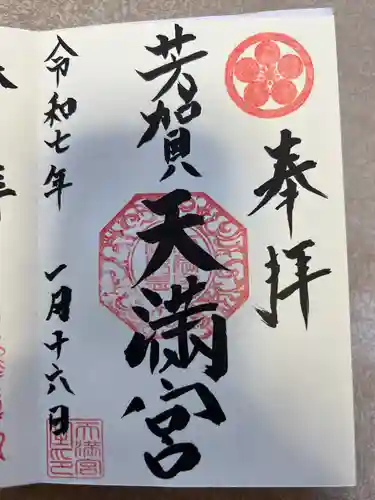 奉拝
芳賀
天満宮
令和七年 一月十六日